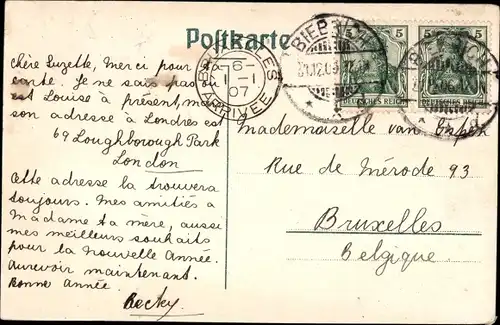 Postkarte
BRUXELLES
6-
1-1
07
ARRIVEE
BIEBRICH
31.12.06
5 5
DEUTSCHES REICH
Chère Suzette, Merci pour ta
carte. Je ne sais pas où
est Louise à présent, mais
son adresse à Londres est
69 Loughborough Park
London
Cette adresse la trouvera
toujours. Mes amitiés à
Madame ta mère, aussi
mes meilleurs souhaits
pour la Nouvelle Année.
Aurevoir maintenant.
Bonne Année.
Becky.
Mademoiselle van
Rue de Mérode 93
Bruxelles
Belgique.